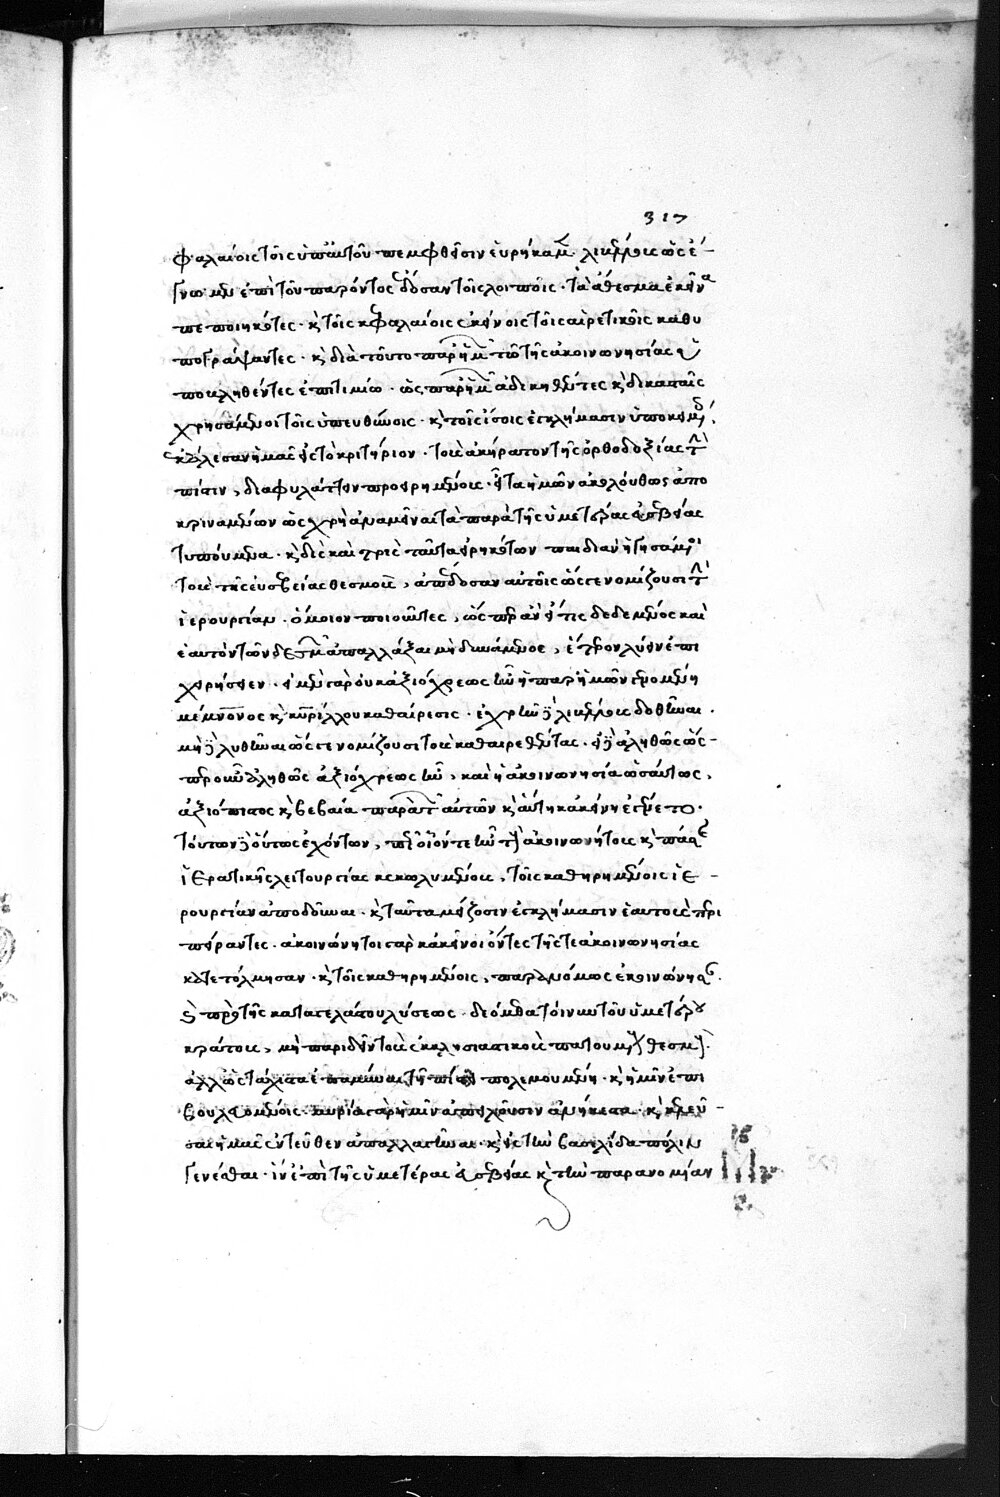 317
φαλαίοις τοῖς ὑπ' αὐτοῦ πεμφθεῖσιν εὑρήκαμεν
ἐπὶ τοῦ παρόντος τοῖς λοιποῖς. τὰ ἄθεσμα ἐκεῖνα
πεποιηκότες. κ τοῖς κεφαλαίοις ἐκείνοις τοῖς αἱρετικοῖς καθυ
πογράψαντες. κ διὰ τοῦτο παρ' ἡμῶν τῷ τῆς ἀκοινωνησίας
ποβληθέντες ἐπιτιμίῳ. ὡς παρ' ἡμῶν ἀδικηθέντες κ δικασταῖς
χρησάμενοι τοῖς ὑπευθύνοις. κ τοῖς ἴσοις ἐγκλήμασιν ὑποκειμένοις,
ἐκάλεσαν ἡμᾶς εἰς τὸ κριτήριον. τοὺς ἀκήρατον τῆς ὀρθοδοξίας τὴν
πίστιν, διαφυλάττειν προειρημένους. εἶτα ἡμῶν ἀκολούθως ἀπο
κριναμένων ὡς χρὴ ἀναμεῖναι τὰ παρὰ τῆς ὑμετέρας εὐσεβείας
τυπούμενα. κ δὶς καὶ τρὶς ταῦτα εἰρηκότων παιδιὰν ἡγησάμενοι
τοὺς τῆς εὐσεβείας θεσμούς, ἀπέδοσαν αὐτοῖς ὥς γε νομίζουσι τὴν
ἱερουργίαν. ὅμοιον ποιοῦντες, ὥσπερ ἂν εἴ τις δεδεμένος καὶ
ἑαυτὸν τῶν δεσμῶν ἀπαλλάξαι μὴ δυνάμενος, ἕτερον λύειν ἐπι
χειρήσειεν. εἰ μὲν γὰρ οὐκ ἀξιόχρεως ἦν ἡ παρ' ἡμῶν γενομένη
μέμνονος κ κυρίλλου καθαίρεσις. ἐχρῆν
μὴ λυθῆναι ὥς γε νομίζουσι τοὺς καθαιρεθέντας. εἰ δὲ ἀληθῶς ὡς
περ οὖν ἀληθῶς ἀξιόχρεως ἦν, καὶ ἡ ἀκοινωνησία ὡσαύτως,
ἀξιόπιστος κ βεβαία παρὰ τ αὐτῶν κ αὕτη κἀκείνη ἐγένετο.
τούτων δὲ οὕτως ἐχόντων, πῶς οἷόν τε ἦν τοῖς ἀκοινωνήτοις κ πάσης
ἱερατικῆς λειτουργίας κεκωλυμένοις, τοῖς καθηρημένοις ἱε
ρουργίαν ἀποδοῦναι. κ ταῦτα μείζοσιν ἐγκλήμασιν ἑαυτοὺς περι
πείραντες. ἀκοινώνητοι γὰρ κἀκεῖνοι ὄντες τῆς τε ἀκοινωνησίας
κατετόλμησαν. κ τοῖς καθηρημένοις, παρανόμως ἐκοινώνησαν.
πρὸ τῆς καταγελάστου λύσεως. δεόμεθα τοίνυν τοῦ ὑμετέρου
κράτους, μὴ παριδεῖν τοὺς ἐκκλησιαστικοὺς πατουμένους θεσμούς.
ἀλλ' ὡς τάχιστα ἐπαμῦναι τῇ πίστει πολεμουμένῃ. κ ἡμῖν ἐπι
βουλευομένοις. μυρία γὰρ ἡμῖν ἀπειλοῦσιν ἀνήκεστα. κ κελεῦ
σαι ἡμᾶς ἐντεῦθεν ἀπαλλαγῆναι. κ εἰς τὴν βασιλίδα πόλιν
γενέσθαι. ἵν' ἐπὶ τῆς ὑμετέρας εὐσεβείας κ τὴν παρανομίαν